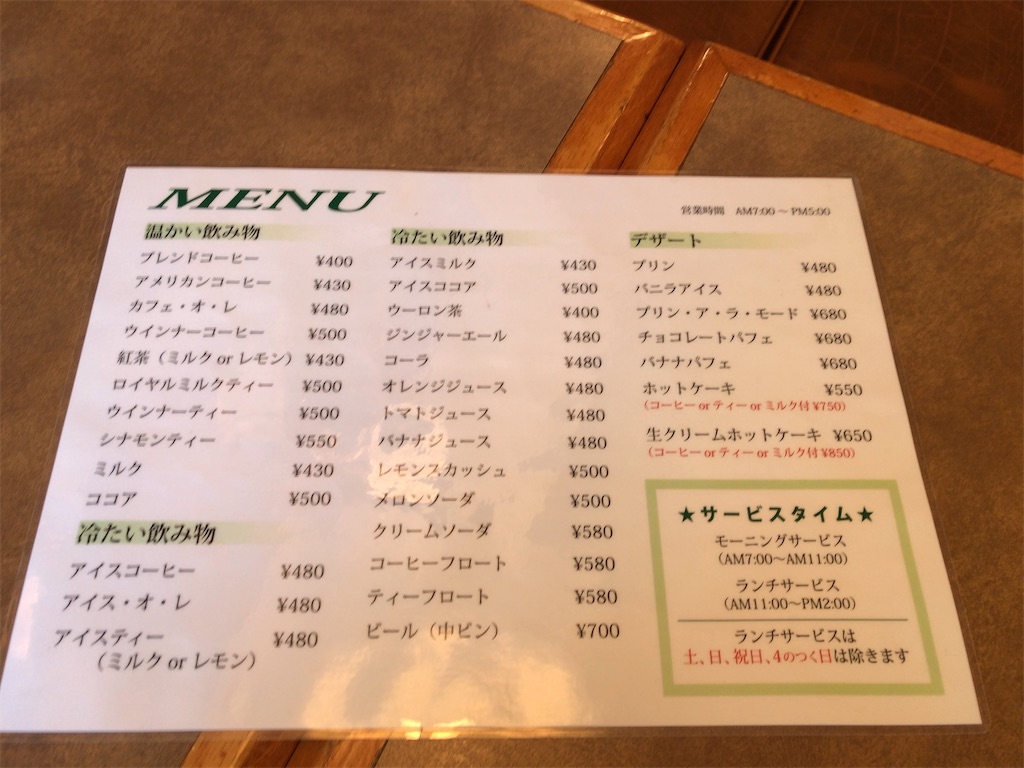 MENU
営業時間 AM7:00～PM5:00
温かい飲み物
ブレンドコーヒー ¥400
アメリカンコーヒー ¥430
カフェ・オ・レ ¥480
ウインナーコーヒー ¥500
紅茶（ミルク or レモン） ¥430
ロイヤルミルクティー ¥500
ウインナーティー ¥500
シナモンティー ¥550
ミルク ¥430
ココア ¥500
冷たい飲み物
アイスコーヒー ¥480
アイス・オ・レ ¥480
アイスティー ¥480
（ミルク or レモン）
冷たい飲み物
アイスミルク ¥430
アイスココア ¥500
ウーロン茶 ¥400
ジンジャーエール ¥480
コーラ ¥480
オレンジジュース ¥480
トマトジュース ¥480
バナナジュース ¥480
レモンスカッシュ ¥500
メロンソーダ ¥500
クリームソーダ ¥580
コーヒーフロート ¥580
ティーフロート ¥580
ビール（中ビン） ¥700
デザート
プリン ¥480
バニラアイス ¥480
プリン・ア・ラ・モード ¥680
チョコレートパフェ ¥680
バナナパフェ ¥680
ホットケーキ ¥550
（コーヒー or ティー or ミルク付 ¥750）
生クリームホットケーキ ¥650
（コーヒー or ティー or ミルク付 ¥850）
★サービスタイム★
モーニングサービス
（AM7:00～AM11:00）
ランチサービス
（AM11:00～PM2:00）
ランチサービスは
土、日、祝日、4のつく日は除きます